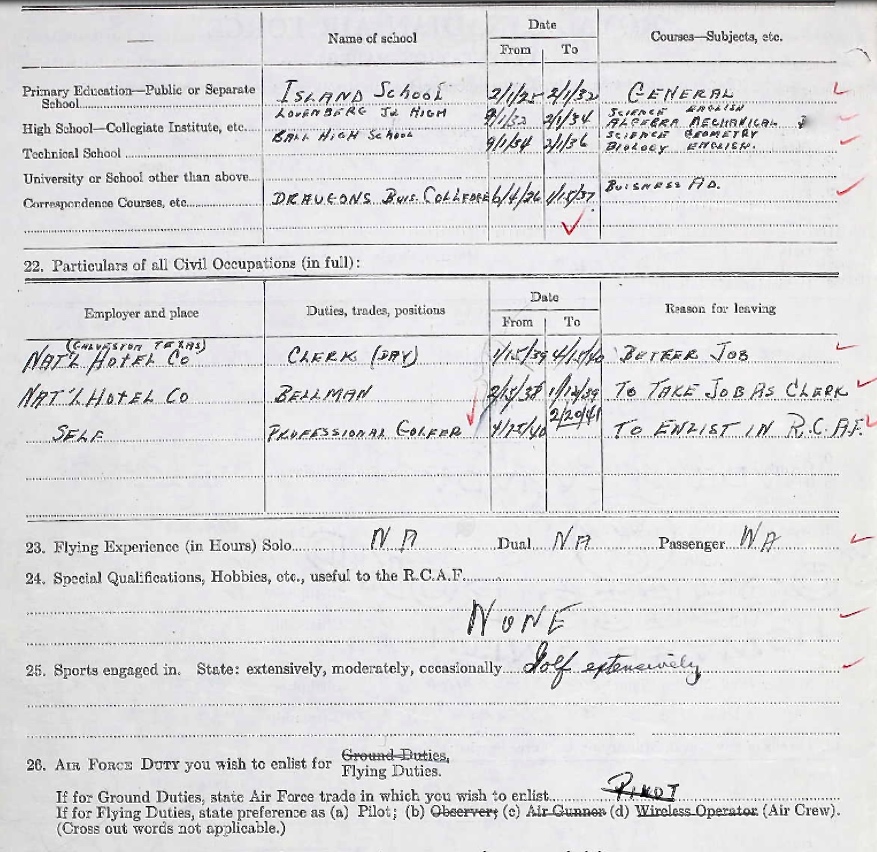 Name of school
Date
From To
Courses—Subjects, etc.
Primary Education—Public or Separate School ISLAND SCHOOL 2/1/25 2/1/32 GENERAL
LOVENBERG JR HIGH 9/1/32 2/1/34 SCIENCE ENGLISH
High School—Collegiate Institute, etc. ALGEBRA MECHANICAL
BALL HIGH SCHOOL 9/1/34 2/1/36 SCIENCE GEOMETRY
Technical School BIOLOGY ENGLISH.
University or School other than above BUISNESS AD.
Correspondence Courses, etc. DRAUGONS BUIS. COLLEGE 6/4/36 1/15/37
22. Particulars of all Civil Occupations (in full):
Employer and place
Duties, trades, positions
Date
From To
Reason for leaving
(GALVESTON TEXAS)
NAT'L HOTEL CO CLERK (DAY) 1/15/39 4/15/40 BETTER JOB
NAT'L HOTEL CO BELLMAN 2/15/38 1/12/39 TO TAKE JOB AS CLERK
SELF PROFESSIONAL GOLFER 4/25/40 2/20/41 TO ENLIST IN R.C.A.F.
23. Flying Experience (in Hours) Solo NA Dual NA Passenger NA
24. Special Qualifications, Hobbies, etc., useful to the R.C.A.F.
NONE
25. Sports engaged in. State: extensively, moderately, occasionally Golf extensively
26. AIR FORCE DUTY you wish to enlist for Ground Duties,
Flying Duties.
If for Ground Duties, state Air Force trade in which you wish to enlist PILOT
If for Flying Duties, state preference as (a) Pilot; (b) Observer; (c) Air Gunner (d) Wireless Operator (Air Crew).
(Cross out words not applicable.)